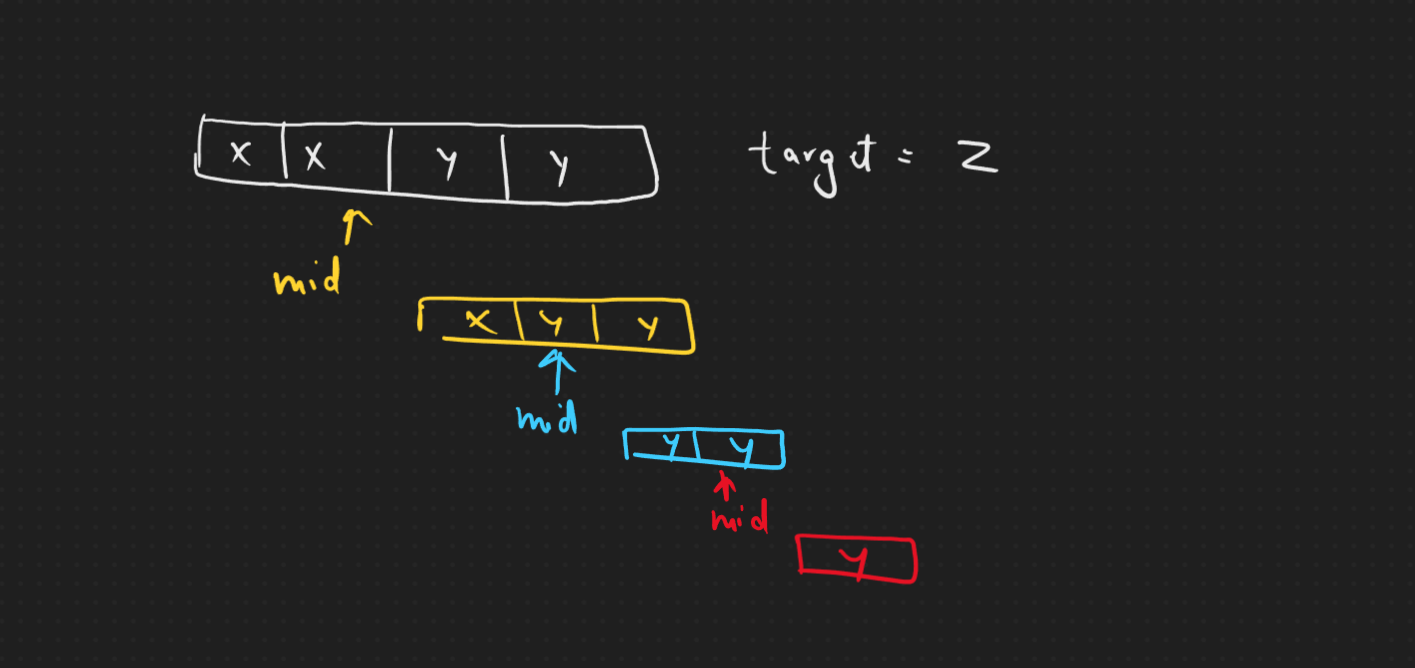 x x y y target = z
mid
x y y
mid
y y
mid
y